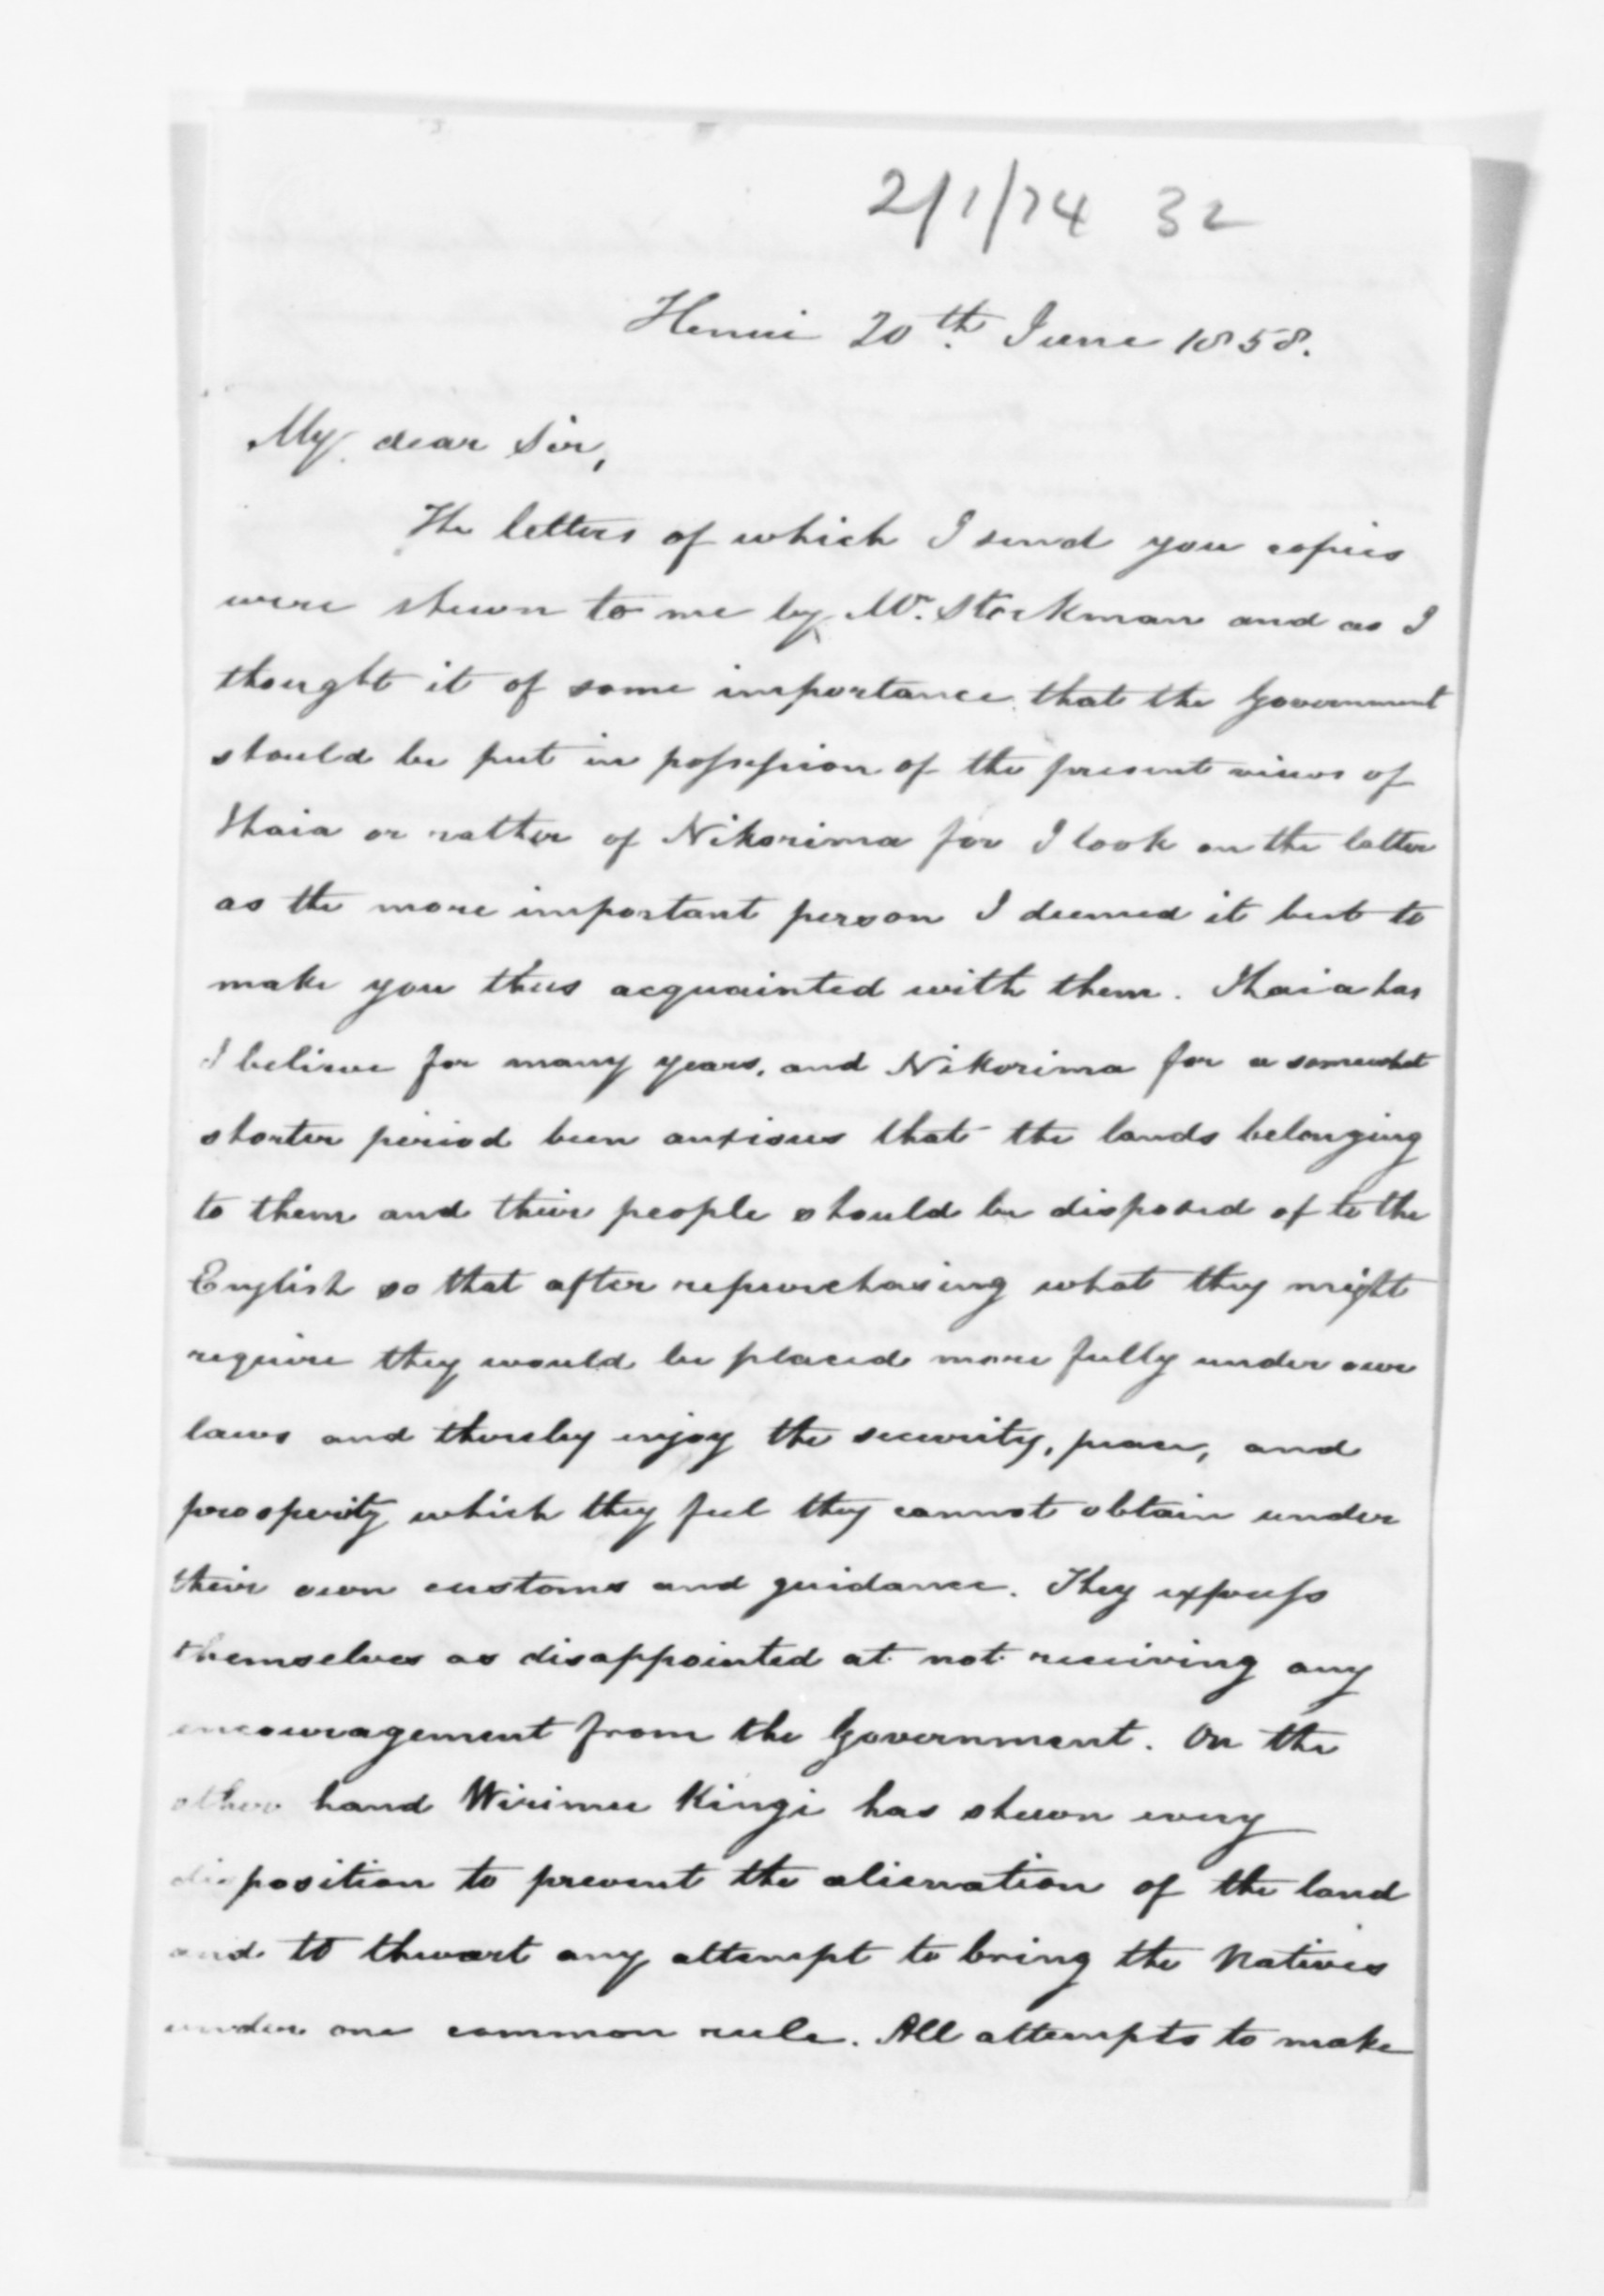 2/1/74 32
Henui 20th June 1858.
My dear Sir,
The letters of which I send you copies
were shewn to me by Mr. Stockman and as I
thought it of some importance that the Government
should be put in possession of the present views of
Ihaia or rather of Nikorima for I look on the latter
as the more important person I deemed it best to
make you thus acquainted with them. Ihaia has
I believe for many years, and Nikorima for a somewhat
shorter period been anxious that the lands belonging
to them and their people should be disposed of to the
English so that after repurchasing what they might
require they would be placed more fully under our
laws and thereby enjoy the security, peace, and
prosperity which they feel they cannot obtain under
their own customs and guidance. They express
themselves as disappointed at not receiving any
encouragement from the Government. On the
other hand Wirimu Kingi has shewn every
disposition to prevent the alienation of the land
and to thwart any attempt to bring the Natives
under one common rule. All attempts to make